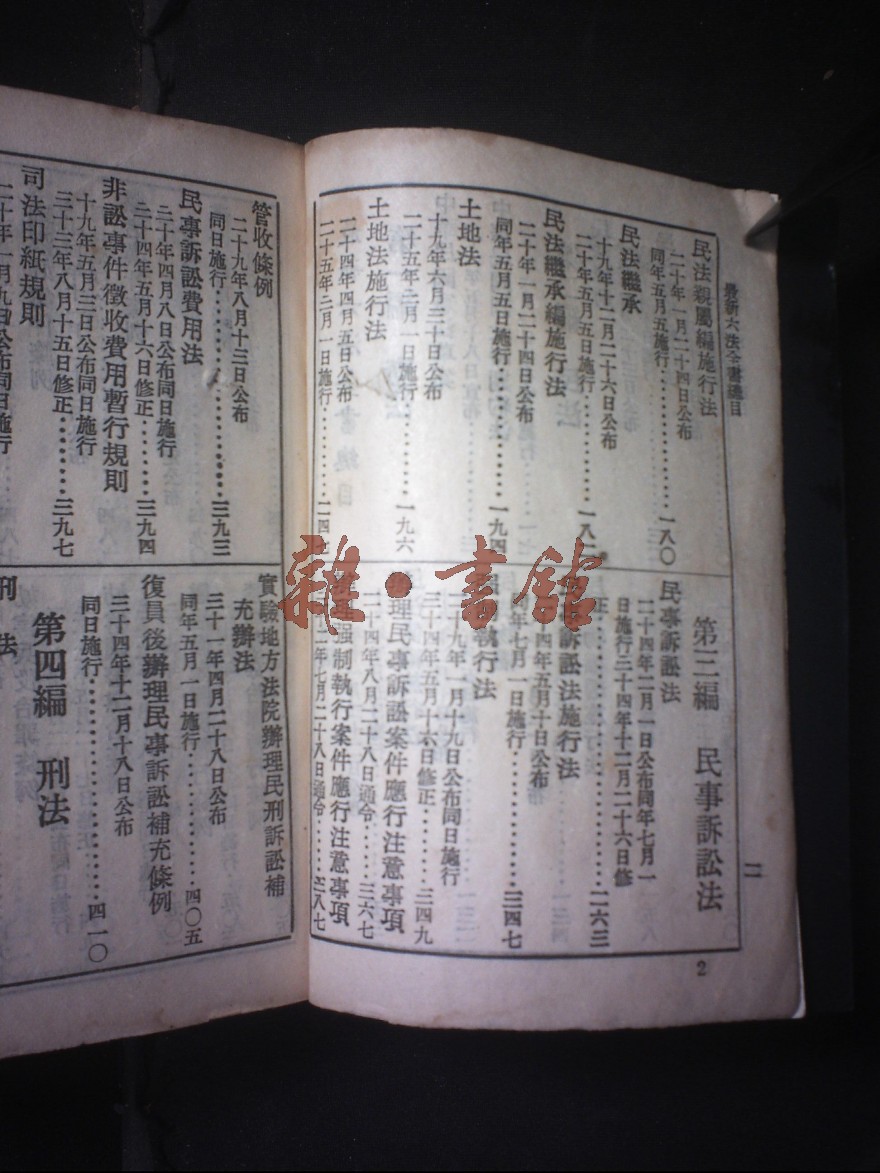 最新六法全書總目
民法親屬編施行法
二十年一月二十四日公布
同年五月五日施行⋯⋯一八〇
民法繼承
十九年十二月二十六日公布
二十年五月五日施行⋯⋯一八
民法繼承編施行法
二十年一月二十四日公布
同年五月五日施行⋯⋯一九四
土地法
十九年六月三十日公布
二十五年三月一日施行⋯⋯一九六
土地法施行法
二十四年四月五日公布
二十五年三月一日施行⋯⋯二四
第三編 民事訴訟法
民事訴訟法
二十四年二月一日公布同年七月一
日施行三十四年十二月二十六日修
正⋯⋯二六三
訴訟法施行法
年五月十日公布
年七月一日施行⋯⋯三四七
執行法
二十九年一月十九日公布同日施行
三十四年五月十六日修正⋯⋯三四九
辦理民事訴訟案件應行注意事項
二十四年八月二十八日通令⋯⋯三六七
辦理强制執行案件應行注意事項
年七月二十八日通令⋯⋯三八七
二
2
管收條例
二十九年八月十三日公布
同日施行⋯⋯三九三
民事訴訟費用法
三十年四月八日公布同日施行
三十四年五月十六日修正⋯⋯三九四
非訟事件徵收費用暫行規則
十九年五月三日公布同日施行
三十三年八月十五日修正⋯⋯三九七
司法印紙規則
二十年一月九日公布同日施行
實驗地方法院辦理民刑訴訟補
充辦法
三十一年四月二十八日公布
同年五月一日施行⋯⋯四〇五
復員後辦理民事訴訟補充條例
三十四年十二月十八日公布
同日施行⋯⋯四一〇
第四編 刑法
刑法
雜·書館